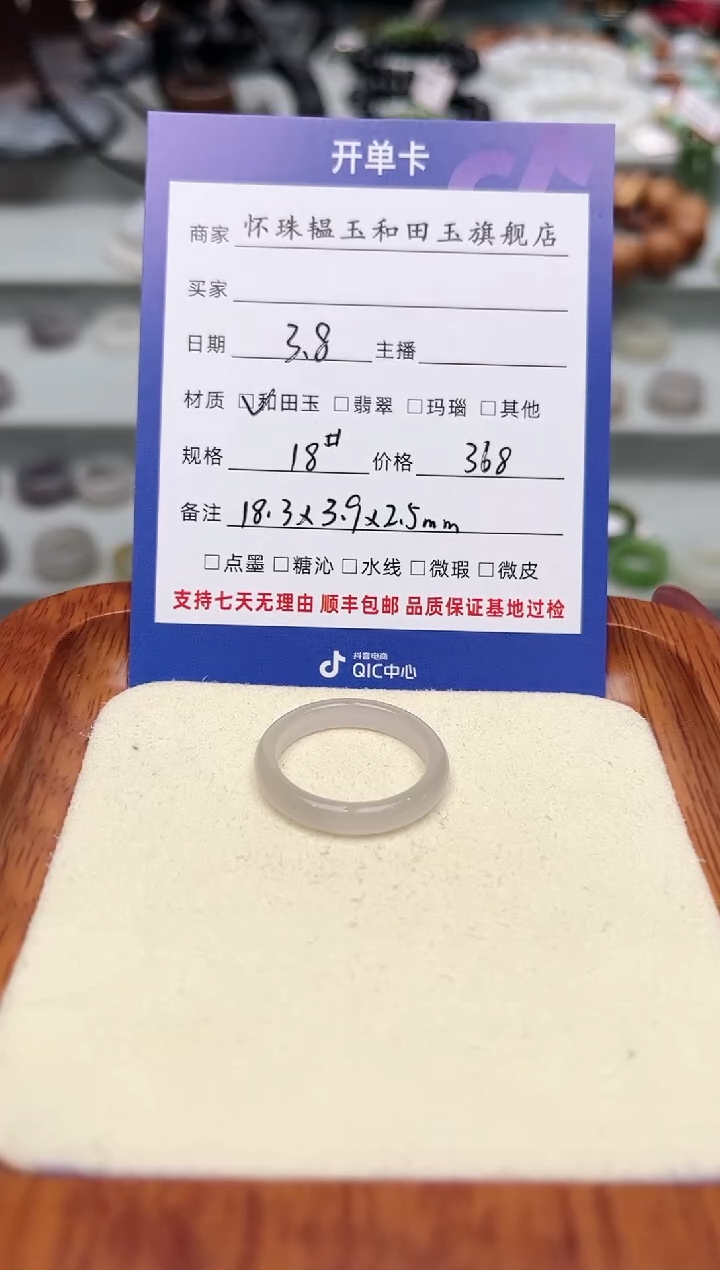 开单卡
商家 怀珠韫玉和田玉旗舰店
买家
日期 3.8 主播
材质 ☑和田玉 □翡翠 □玛瑙 □其他
规格 18# 价格 368
备注 18.3x3.9x2.5mm
□点墨 □糖沁 □水线 □微瑕 □微皮
支持七天无理由 顺丰包邮 品质保证基地过检
抖音电商
QIC中心